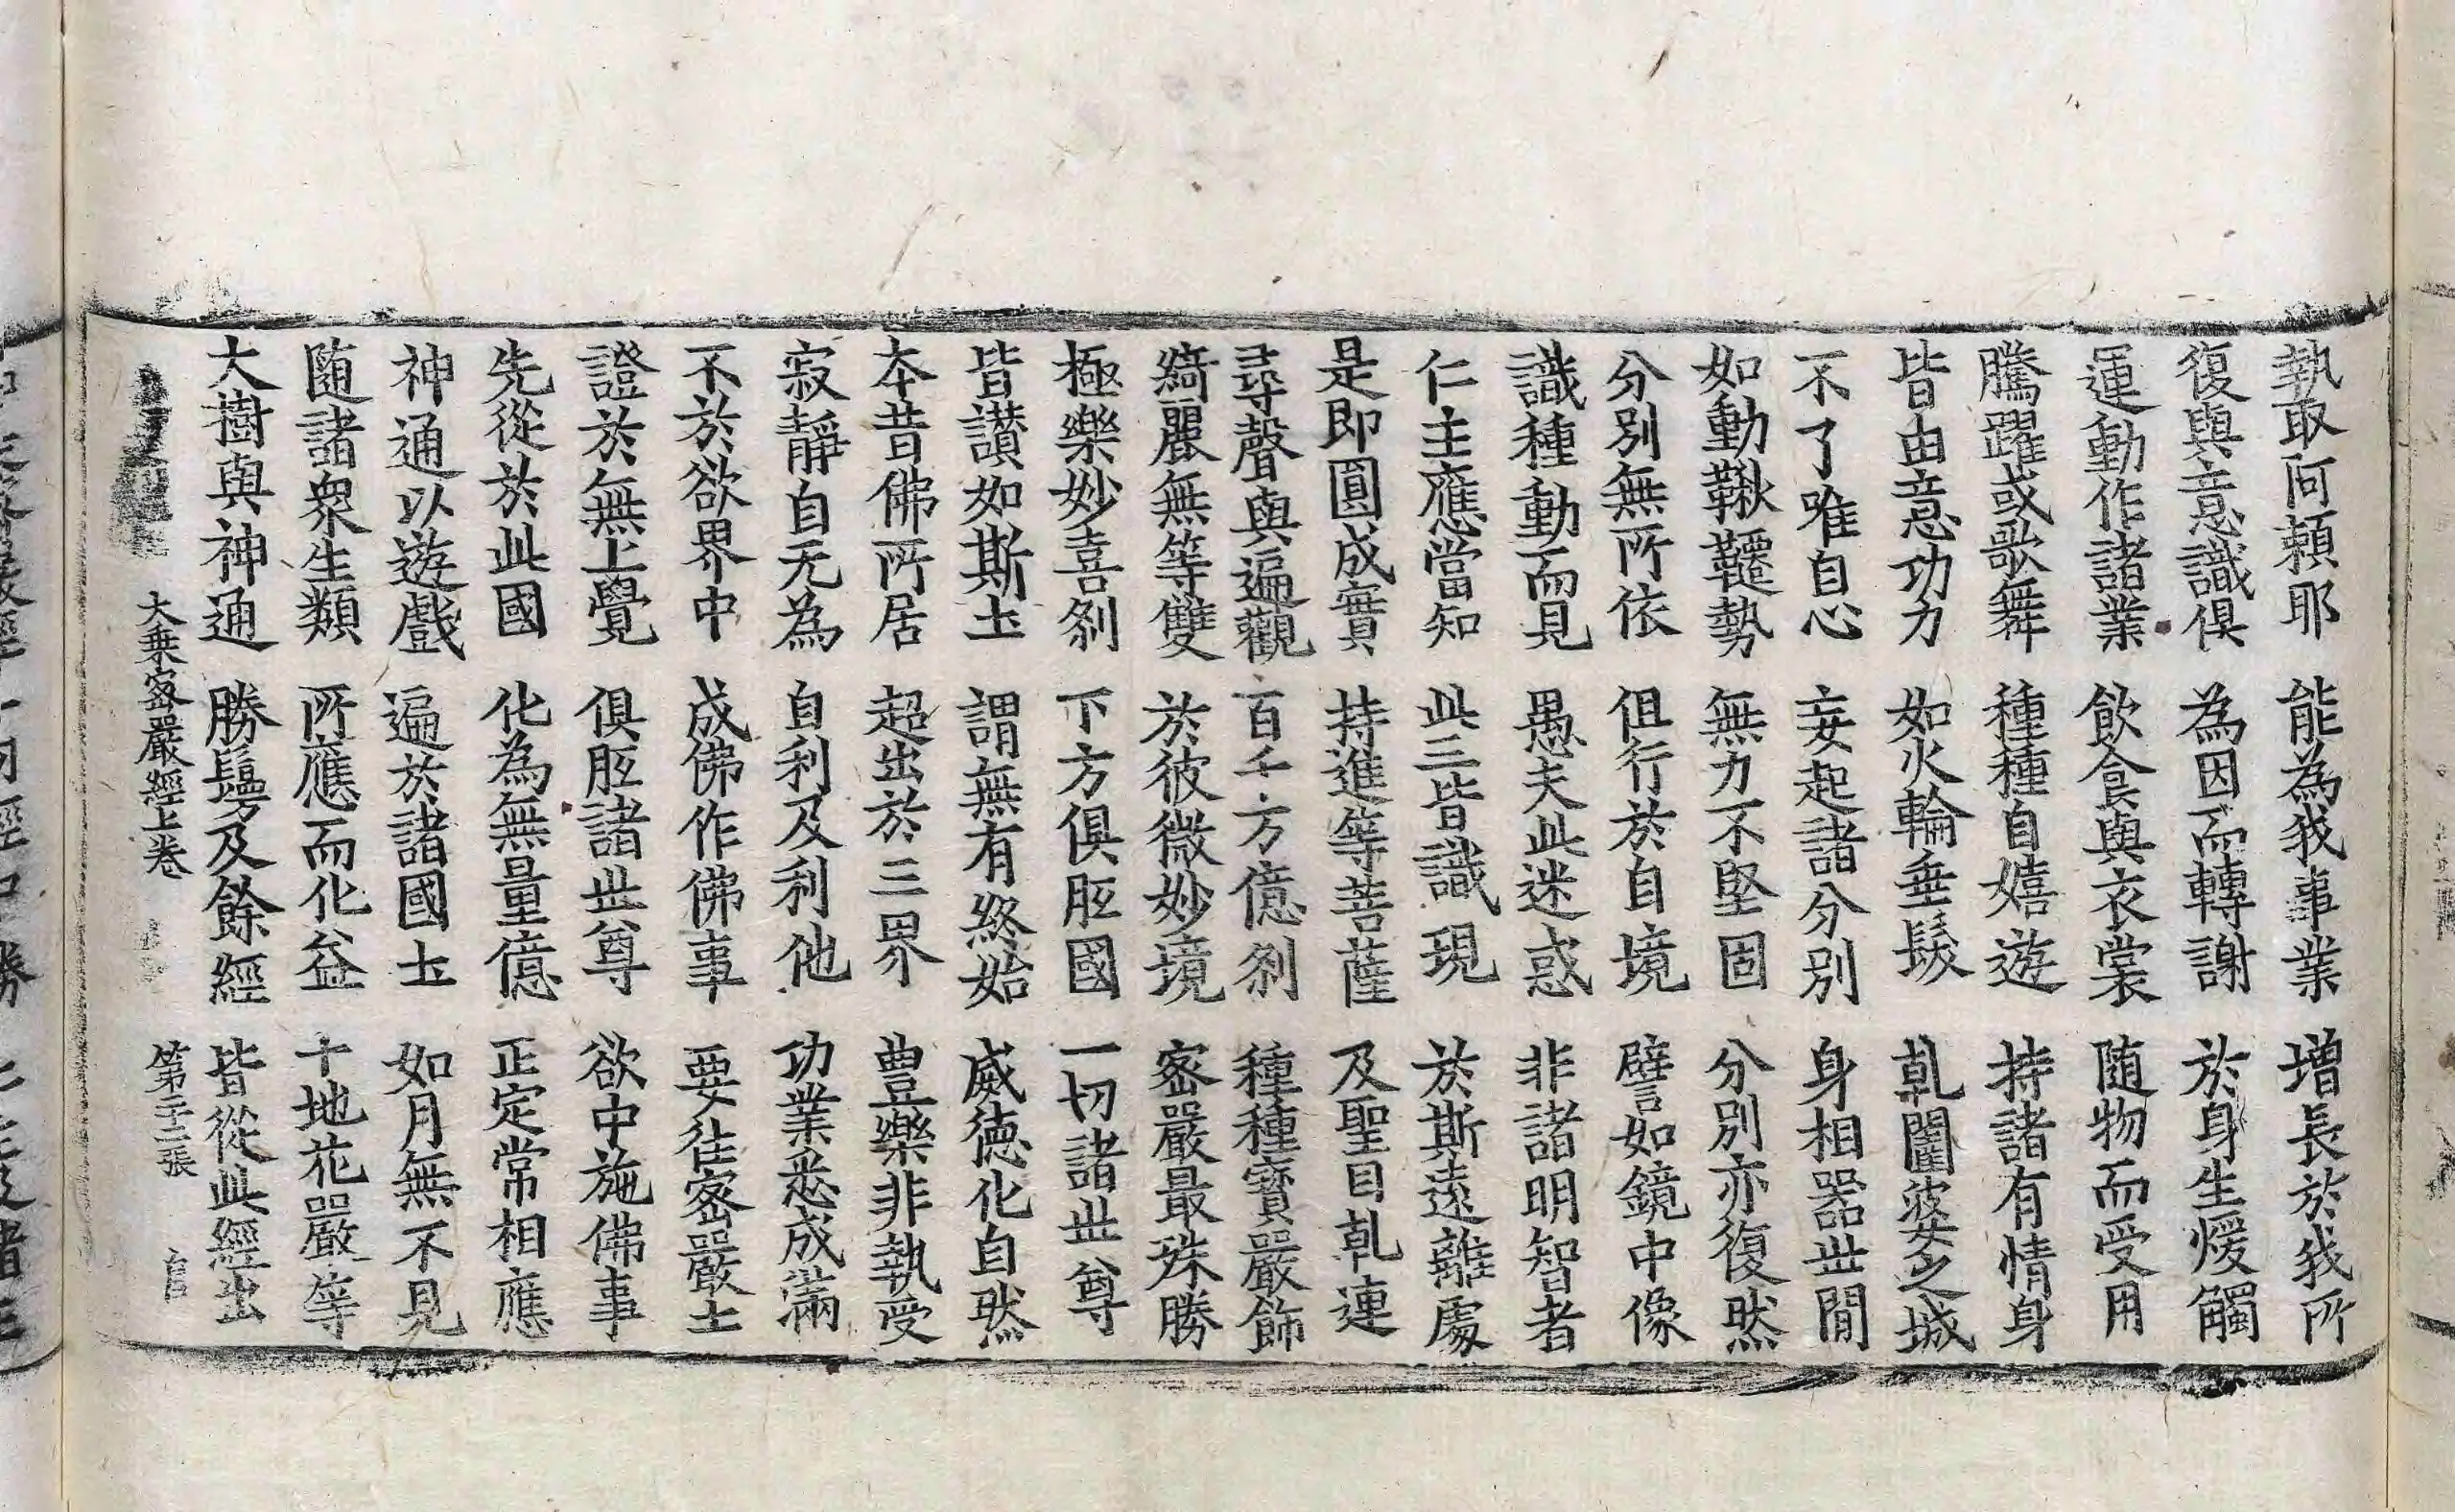 執取阿賴耶 能為我事業 增長於我所
復與意識俱 為因而轉謝 於身生煖觸
運動作諸業 飲食與衣裳 随物而受用
騰躍或歌舞 種種自嬉遊 持諸有情身
皆由意功力 如火輪垂髮 乹闥婆之城
不了唯自心 妄起諸分別 身相器丗間
如動鞦韆勢 無力不堅固 分別亦復然
分別無所依 但行於自境 譬如鏡中像
識種動而見 愚夫此迷惑 非諸明智者
仁主應當知 此三皆識現 於斯遠離處
是即圓成實 持進等菩薩 及聖目乹連
尋聲與遍觀 百千万億剎 種種寶嚴飾
綺麗無等雙 於彼微妙境 密嚴最殊勝
極樂妙喜剎 下方俱胝國 一切諸丗尊
皆讃如斯土 謂無有終始 威德化自然
本昔佛所居 超出於三界 豊樂非執受
寂靜自无為 自利及利他 功業悉成滿
不於欲界中 成佛作佛事 要往密嚴土
證於無上覺 俱胝諸丗尊 欲中施佛事
先從於此國 化為無量億 正定常相應
神通以遊戲 遍於諸國土 如月無不見
随諸衆生類 所應而化益 十地花嚴等
大樹與神通 勝鬘及餘經 皆從此經出
大乘密嚴經上卷 第二十二張